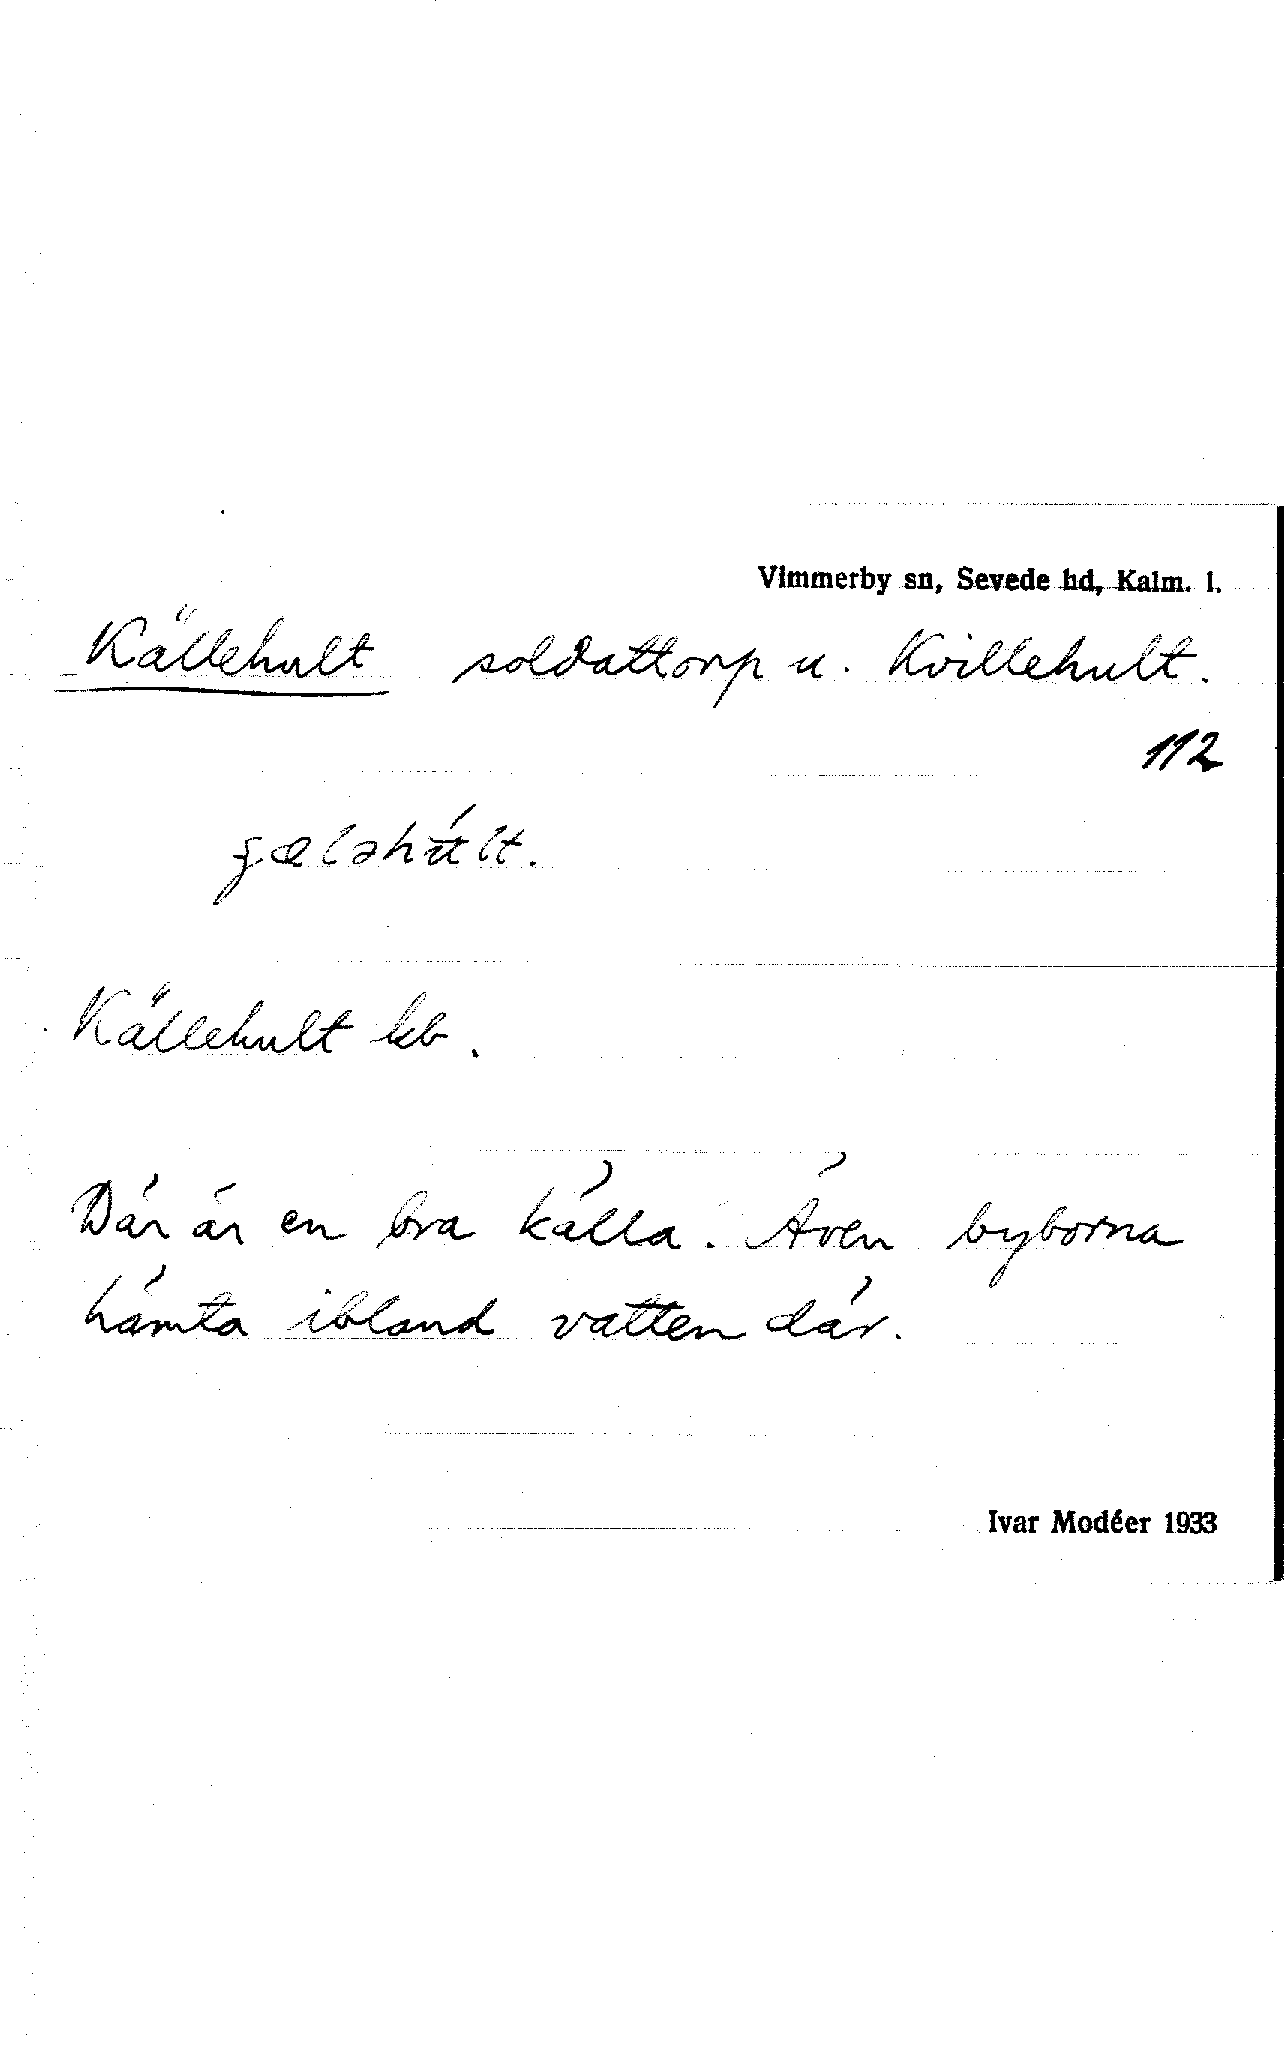 Vimmerby sn, Sevede hd, Kalm. l.
Källehult soldattorp u. Kvillehult.
112
Källehult kb.
Där är en bra källa. Även byborna
hämta ibland vatten där.
Ivar Modéer 1933